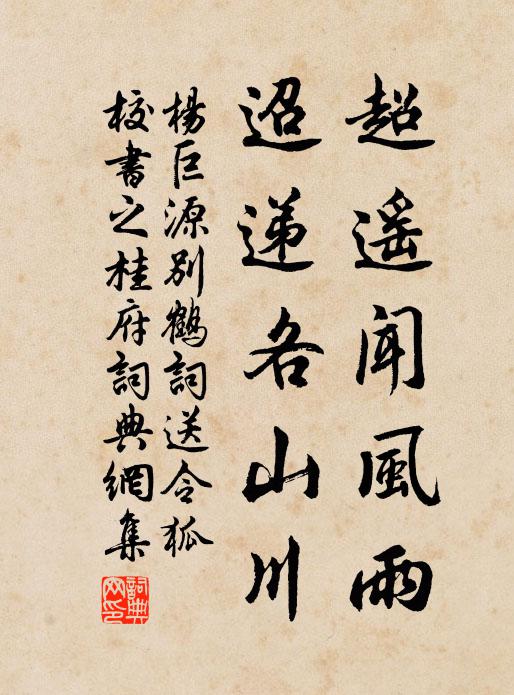 超遥闻風雨
迢递各山川
楊巨源别鶴詞送令狐
校書之桂府詞典網集
詞典網印